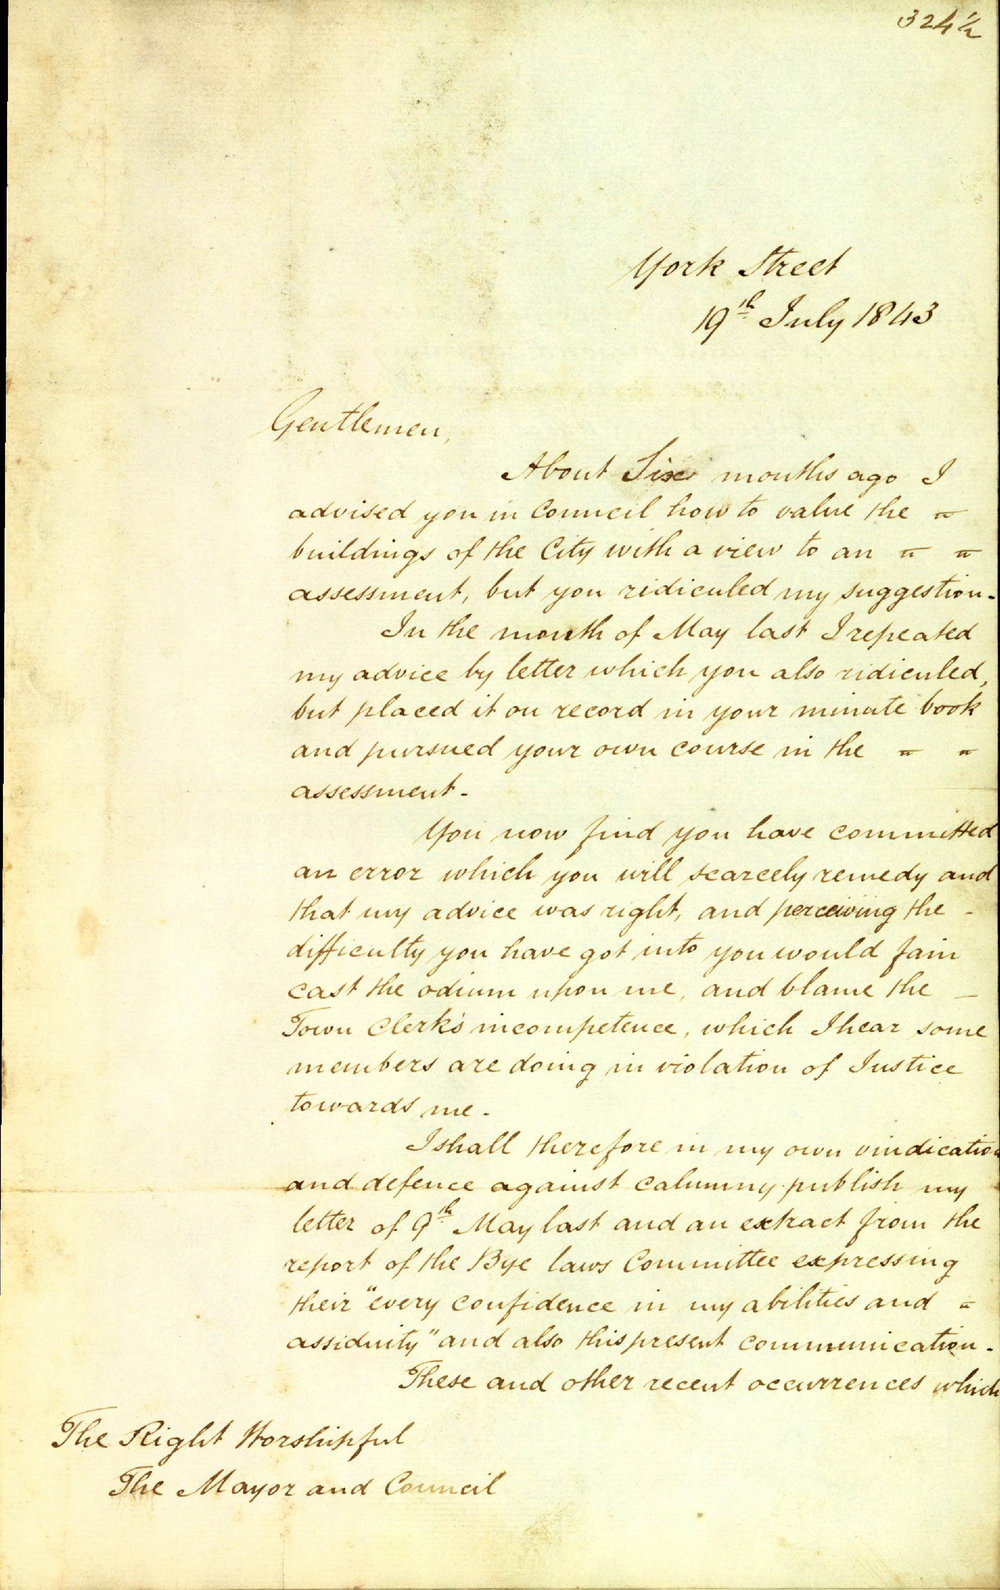 324½
York Street
19th July 1843
Gentlemen,
About Six months ago I
advised you in Council how to value the =
buildings of the City with a view to an = =
assessment, but you ridiculed my suggestion.
In the month of May last I repeated
my advice by letter which you also ridiculed,
but placed it on record in your minute book
and pursued your own course in the = =
assessment.
You now find you have committed
an error which you will scarcely remedy and
that my advice was right, and perceiving the -
difficulty you have got into you would fain
cast the odium upon me, and blame the -
Town Clerk's incompetence, which I hear some
members are doing in violation of Justice
towards me.
I shall therefore in my own vindication
and defence against calumny publish my
letter of 9th May last and an extract from the
report of the Bye laws Committee expressing
their "every confidence in my abilities and =
assiduity" and also this present communication.
These and other recent occurrences which
The Right Worshipful
The Mayor and Council